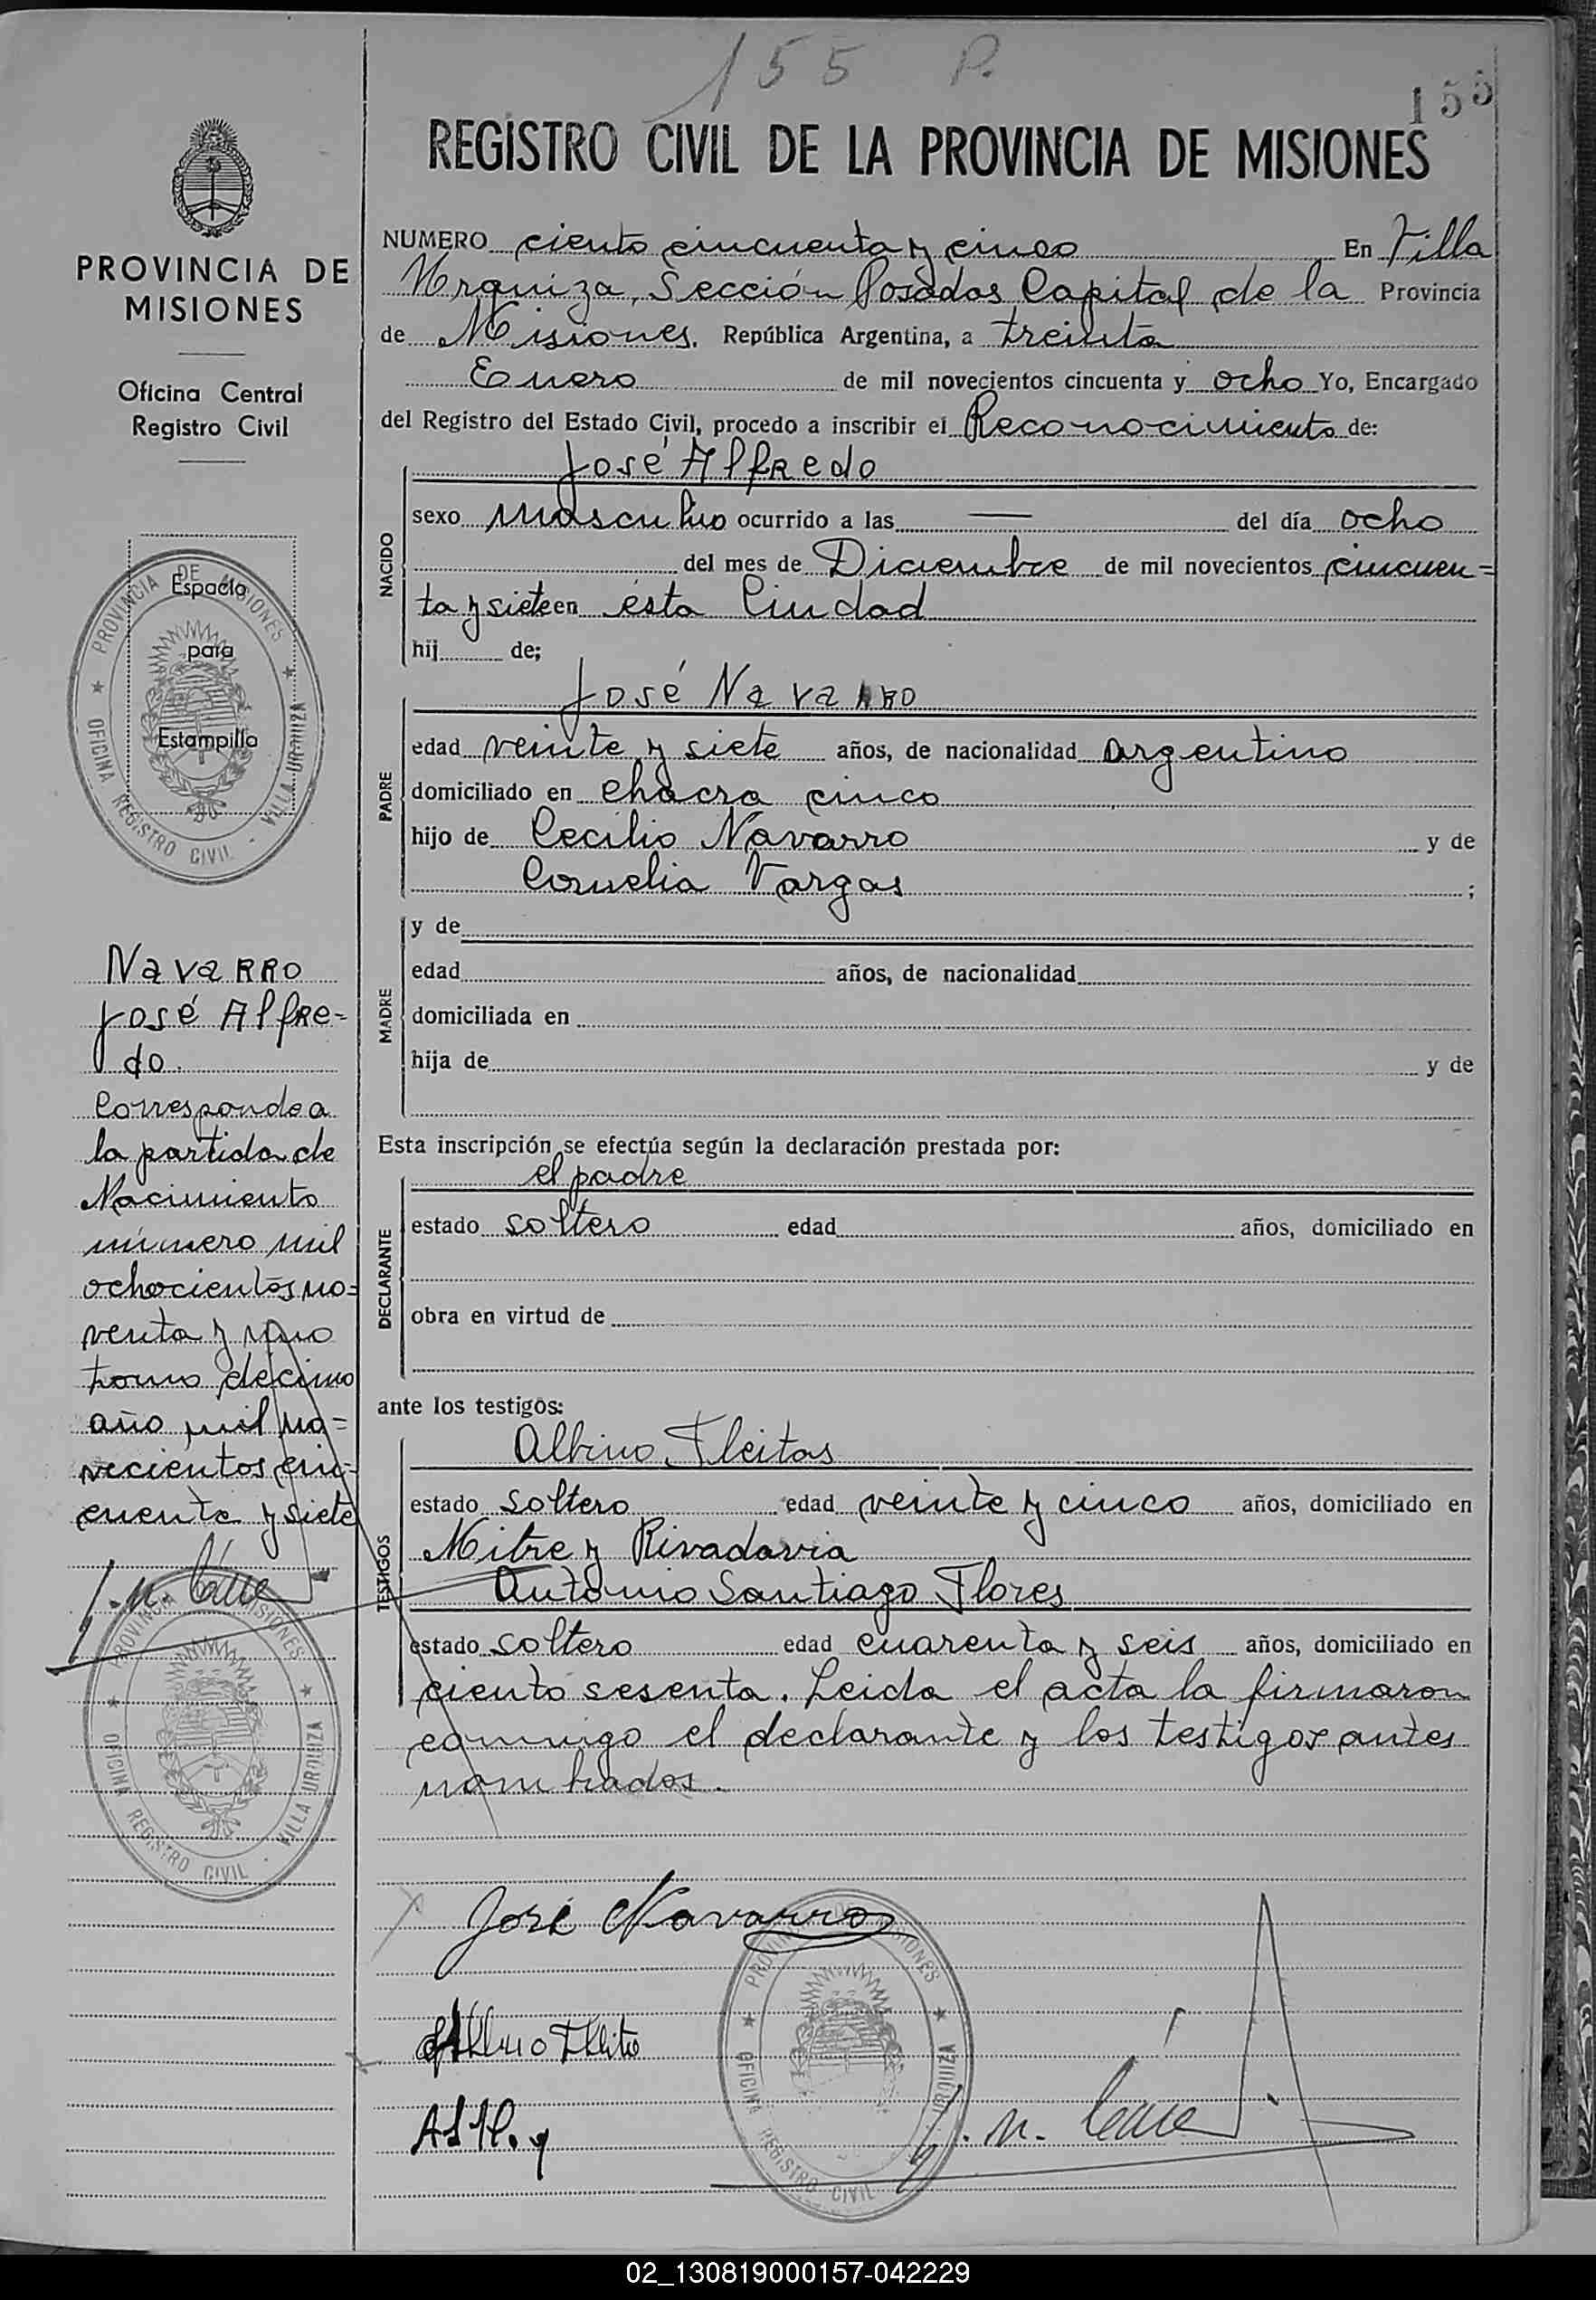 155 P.
155
REGISTRO CIVIL DE LA PROVINCIA DE MISIONES
PROVINCIA DE
MISIONES
Oficina Central
Registro Civil
Espacio
para
Estampilla
PROVINCIA DE MISIONES
OFICINA REGISTRO CIVIL - VILLA URQUIZA
Navarro
José Alfre-
do.
Corresponde a
la partida de
Nacimiento
número mil
ochocientos no=
venta y uno
tomo décimo
año mil no=
vecientos cin-
cuenta y siete
PROVINCIA DE MISIONES
OFICINA REGISTRO CIVIL - VILLA URQUIZA
NUMERO ciento cincuenta y cinco En Villa
Urquiza, Sección Posadas Capital de la Provincia
de Misiones, República Argentina, a treinta
Enero de mil novecientos cincuenta y ocho Yo, Encargado
del Registro del Estado Civil, procedo a inscribir el Reconocimiento de:
NACIDO
José Alfredo
sexo masculino ocurrido a las — del día ocho
del mes de Diciembre de mil novecientos cincuen=
ta y siete en ésta Ciudad
hij de;
PADRE
José Navarro
edad veinte y siete años, de nacionalidad argentino
domiciliado en chacra cinco
hijo de Cecilio Navarro y de
Cornelia Vargas ;
MADRE
y de
edad años, de nacionalidad
domiciliada en
hija de y de
Esta inscripción se efectúa según la declaración prestada por:
DECLARANTE
el padre
estado soltero edad años, domiciliado en
obra en virtud de
ante los testigos:
TESTIGOS
Albino Fleitas
estado soltero edad veinte y cinco años, domiciliado en
Mitre y Rivadavia
Antonio Santiago Flores
estado soltero edad cuarenta y seis años, domiciliado en
ciento sesenta. Leida el acta la firmaron
conmigo el declarante y los testigos antes
nombrados.
José Navarro
PROVINCIA DE MISIONES
OFICINA REGISTRO CIVIL VILLA URQUIZA
02_130819000157-042229